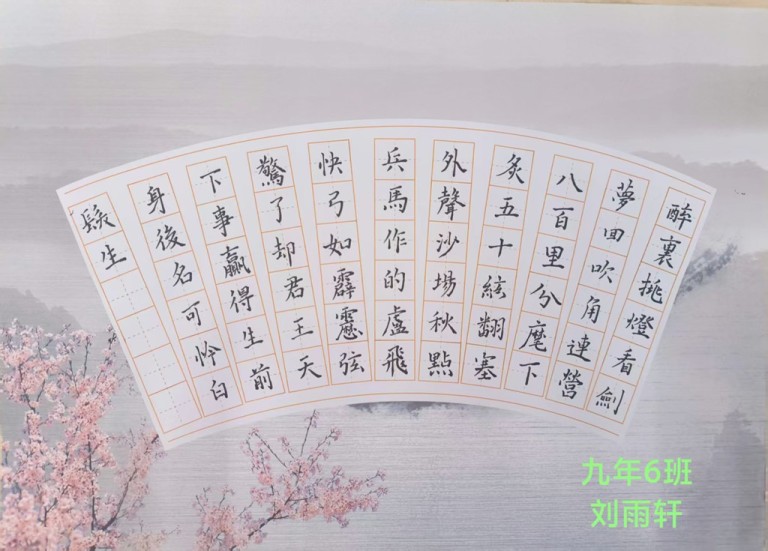 醉裏挑燈看劍
夢回吹角連營
八百里分麾下
炙五十絃翻塞
外聲沙場秋點
兵馬作的盧飛
快弓如霹靂弦
驚了却君王天
下事贏得生前
身後名可怜白
髮生
九年6班
刘雨轩